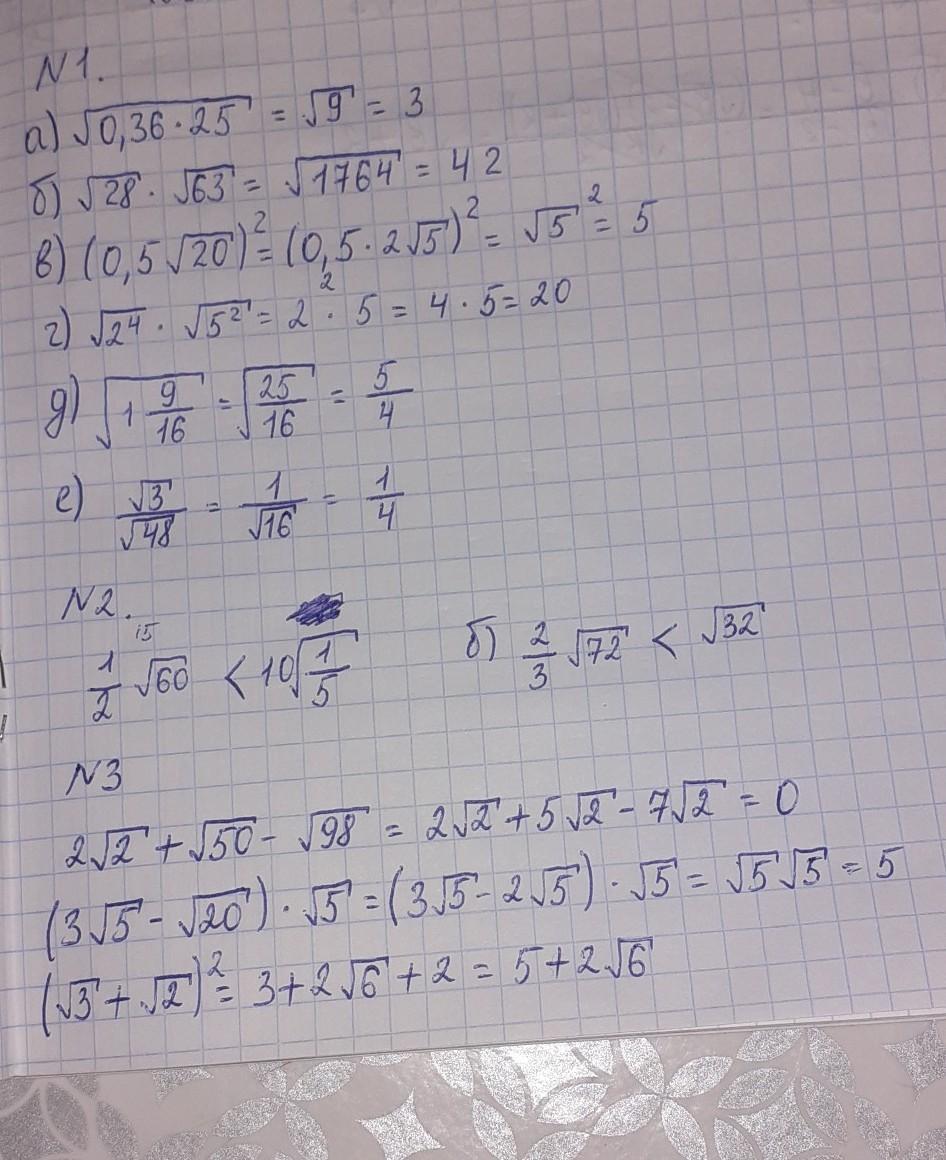 N1.
а) √(0,36·25) = √9 = 3
б) √28 · √63 = √1764 = 42
в) (0,5√20)² = (0,5·2√5)² = √5² = 5
г) √2⁴ · √5² = 2² · 5 = 4·5 = 20
д) √(1 9/16) = √(25/16) = 5/4
е) √3/√48 = 1/√16 = 1/4
N2.
15
1/2 √60 < 10√(1/5) б) 2/3 √72 < √32
N3
2√2 + √50 - √98 = 2√2 + 5√2 - 7√2 = 0
(3√5 - √20) · √5 = (3√5 - 2√5) · √5 = √5√5 = 5
(√3 + √2)² = 3 + 2√6 + 2 = 5 + 2√6